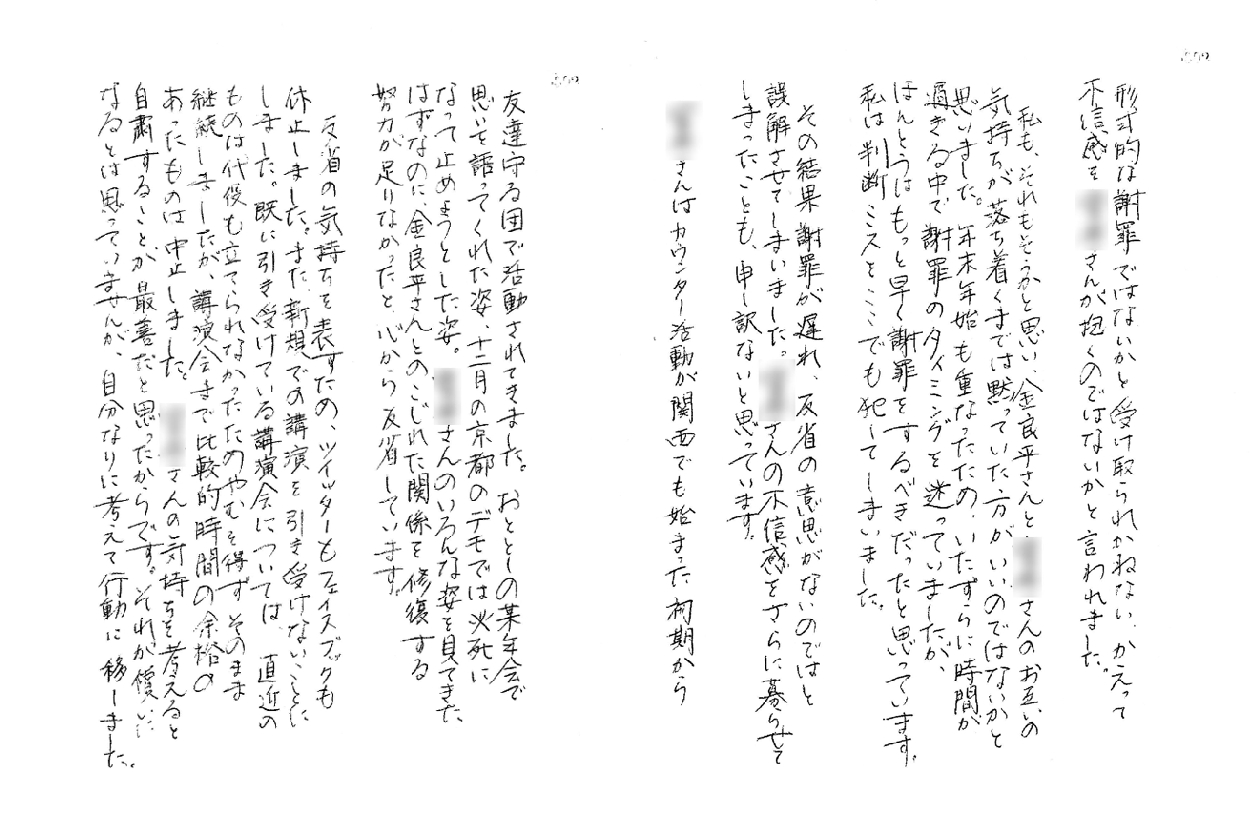 形式的な謝罪ではないかと受け取られかねない、かえって
不信感を
さんが抱くのではないかと言われました。
私も、それもそうかと思い、金良平さんと
さんのお互いの
気持ちが落ち着くまでは黙っていた方がいいのではないかと
思いました。年末年始も重なったため、いたずらに時間が
過ぎる中で謝罪のタイミングを迷っていましたが、
ほんとうはもっと早く謝罪をするべきだったと思っています。
私は判断ミスをここでも犯してしまいました。
その結果謝罪が遅れ、反省の意思がないのではと
誤解させてしまいました。
さんの不信感をさらに募らせて
しまったことも、申し訳ないと思っています。
さんはカウンター活動が関西でも始まった初期から
友達守る団で活動されてきました。おととしの某年会で
思いを語ってくれた姿、十二月の京都のデモでは必死に
なって止めようとした姿。
さんのいろんな姿を見てきた
はずなのに、金良平さんとのこじれた関係を修復する
努力が足りなかったと、心から反省しています。
反省の気持ちを表すため、ツイッターもフェイスブックも
休止しました。また、新規での講演を引き受けないことに
しました。既に引き受けている講演会については、直近の
ものは代役も立てられなかったためやむを得ずそのまま
継続しましたが、講演会まで比較的時間の余裕の
あったものは中止しました。
さんの気持ちを考えると
自粛することが最善だと思ったからです。それが償いに
なるとは思っていませんが、自分なりに考えて行動に移しました。